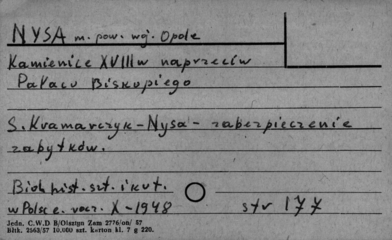 NYSA m. pow. wj. Opole
Kamienice XVIII w naprzeciw
Pałacu Biskupiego
S. Kramarczyk - Nysa - zabezpieczenie
zabytków.
Biul. hist. szt. i kult.
w Polsce. rocz. X - 1948 str 177
Jedn. C.W.D B/Olsztyn Zam 2776/on/ 57
Bltk. 2563/57 10.000 szt. karton kl. 7 g 220.